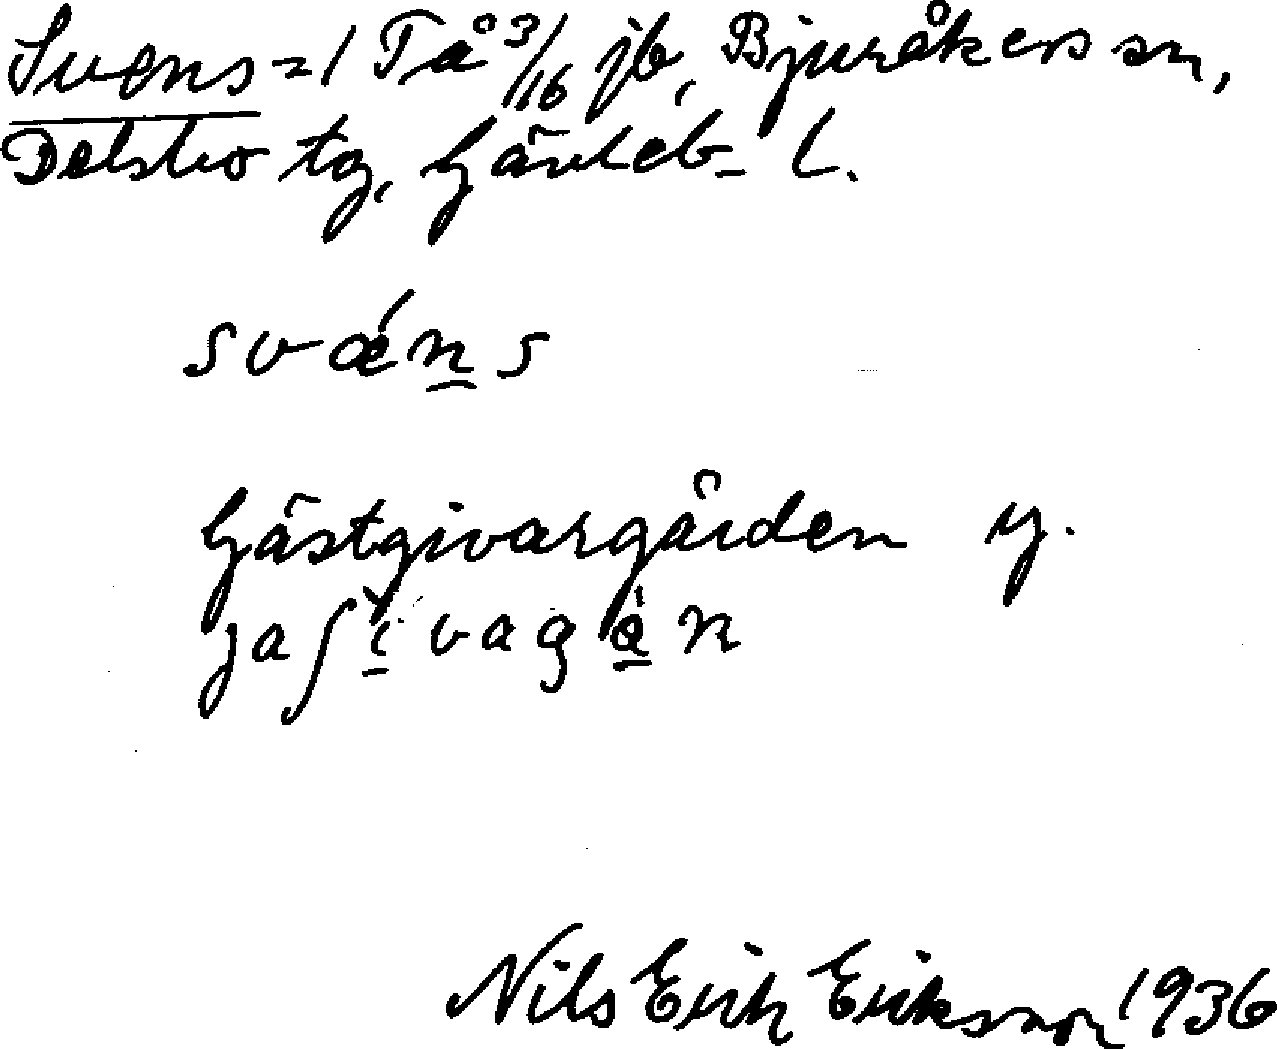 Svens = 1 Tå 3/16 jb, Bjuråkers sn,
Delsbo tg, Gävleb. l.
svǽn̲s
Gästgivargården y.
jaʃi̲vaga̲n
Nils Erik Eriksson 1936